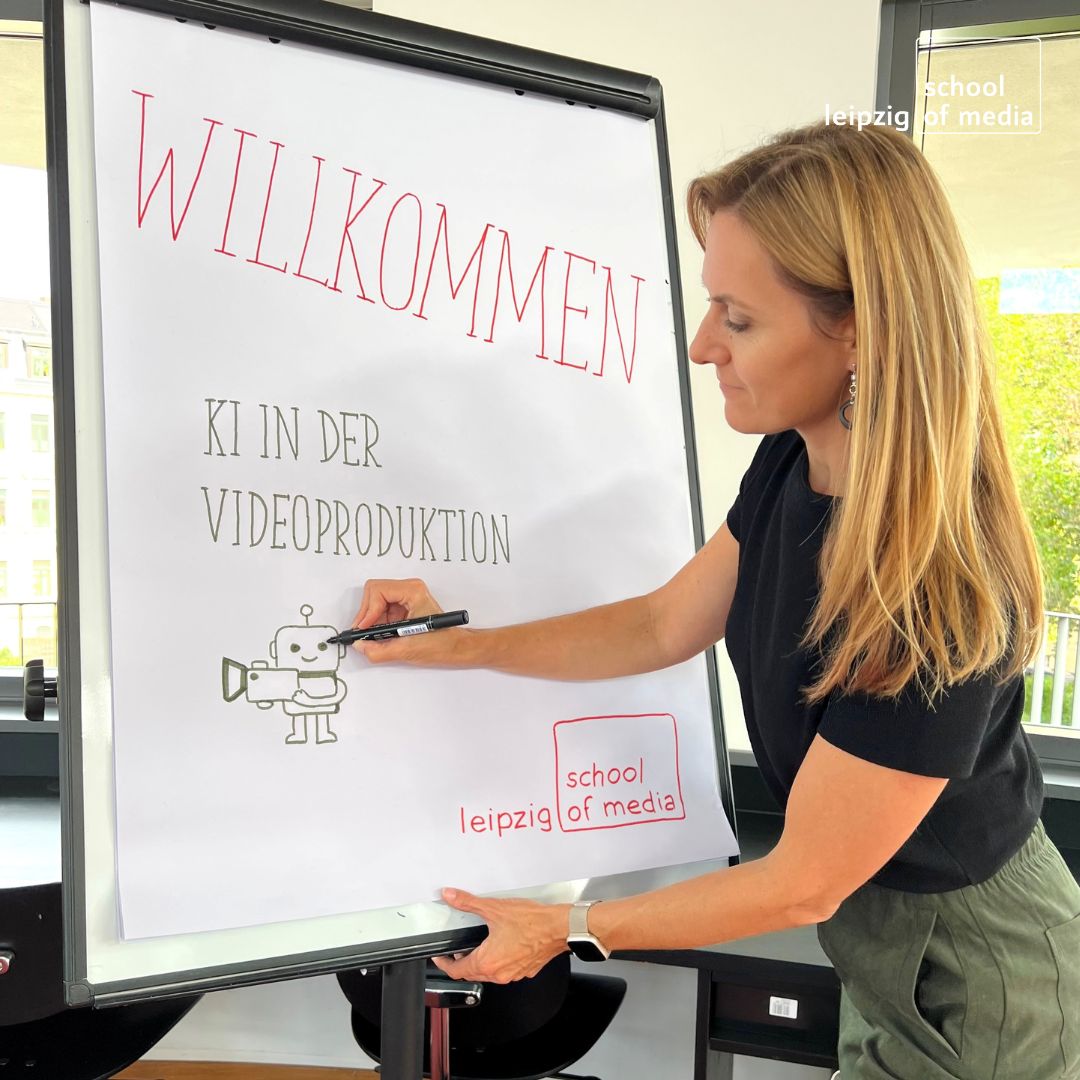 school
leipzig of media
WILLKOMMEN
KI IN DER
VIDEOPRODUKTION
school
leipzig of media